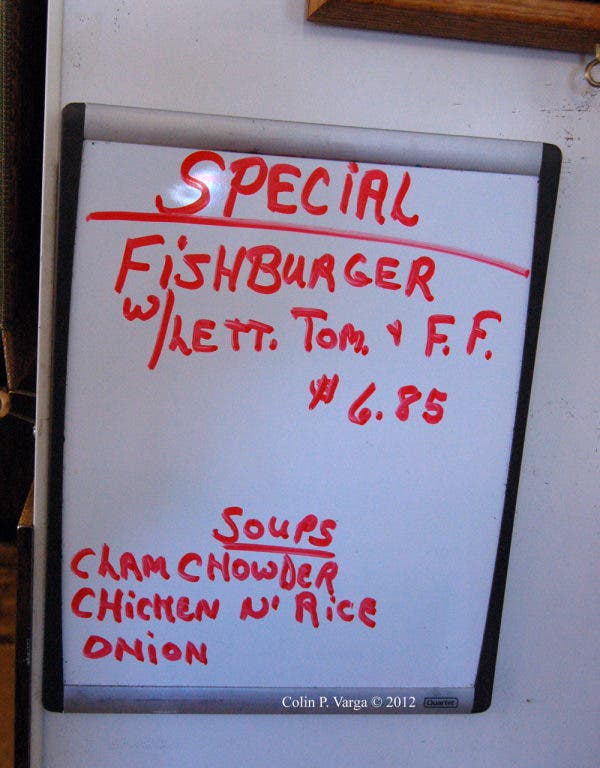 SPECiAL
FiSHBURGER
W/LETT. TOM. & F.F.
$6.85
SOUPS
CLAM CHOWDER
CHiCKEN N' RiCE
ONiON
Colin P. Varga © 2012
Quartet